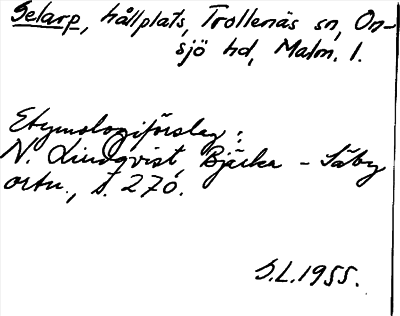 Selarp, hållplats, Trollenäs sn, On-
sjö hd, Malm. l.
Etymologiförslag:
N. Lindqvist, Bjärka - Säby
ortn., s. 270.
S.L. 1955.